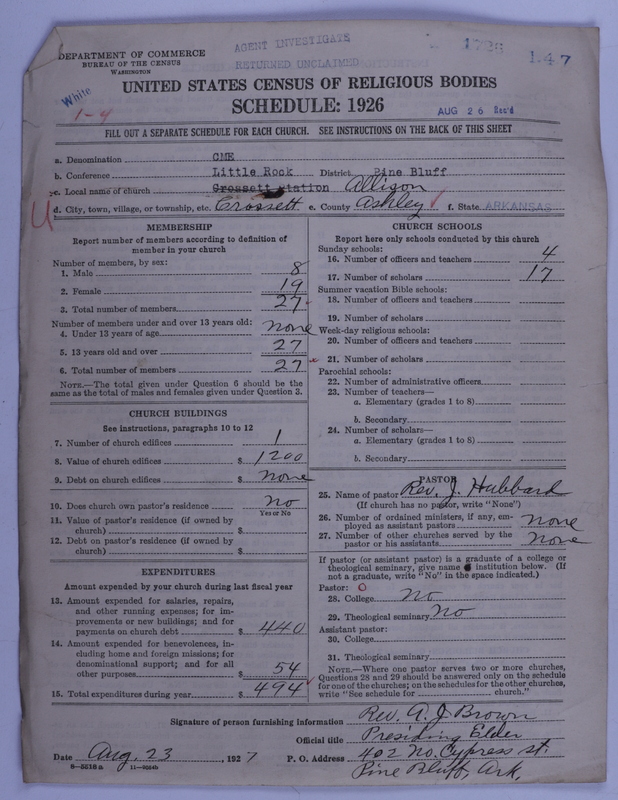 DEPARTMENT OF COMMERCE
BUREAU OF THE CENSUS
WASHINGTON
AGENT INVESTIGATE
RETURNED UNCLAIMED
1726
147
White
1-4
UNITED STATES CENSUS OF RELIGIOUS BODIES
SCHEDULE: 1926
AUG 26 Rec'd
FILL OUT A SEPARATE SCHEDULE FOR EACH CHURCH. SEE INSTRUCTIONS ON THE BACK OF THIS SHEET
a. Denomination CME
b. Conference Little Rock District Pine Bluff
c. Local name of church Crossett station Allison
d. City, town, village, or township, etc. Crossett e. County Ashley f. State ARKANSAS
MEMBERSHIP
Report number of members according to definition of
member in your church
Number of members, by sex:
1. Male 8
2. Female 19
3. Total number of members 27
Number of members under and over 13 years old:
4. Under 13 years of age none
5. 13 years old and over 27
6. Total number of members 27
NOTE.—The total given under Question 6 should be
the same as the total of males and females given under Question 3.
CHURCH BUILDINGS
See instructions, paragraphs 10 to 12
7. Number of church edifices 1
8. Value of church edifices $ 1200
9. Debt on church edifices $ none
10. Does church own pastor's residence no
Yes or No
11. Value of pastor's residence (if owned by
church) $
12. Debt on pastor's residence (if owned by
church) $
EXPENDITURES
Amount expended by your church during last fiscal year
13. Amount expended for salaries, repairs,
and other running expenses; for im-
provements or new buildings; and for
payments on church debt $ 440
14. Amount expended for benevolences, in-
cluding home and foreign missions; for
denominational support; and for all
other purposes $ 54
15. Total expenditures during year $ 494
CHURCH SCHOOLS
Report here only schools conducted by this church
Sunday schools:
16. Number of officers and teachers 4
17. Number of scholars 17
Summer vacation Bible schools:
18. Number of officers and teachers
19. Number of scholars
Week-day religious schools:
20. Number of officers and teachers
21. Number of scholars
Parochial schools:
22. Number of administrative officers
23. Number of teachers—
a. Elementary (grades 1 to 8)
b. Secondary
24. Number of scholars—
a. Elementary (grades 1 to 8)
b. Secondary
PASTOR
25. Name of pastor Rev. J. Hubbard
(If church has no pastor, write "None")
26. Number of ordained ministers, if any, em-
ployed as assistant pastors none
27. Number of other churches served by the
pastor or his assistants none
If pastor (or assistant pastor) is a graduate of a college or
theological seminary, give name of institution below. (If
not a graduate, write "No" in the space indicated.)
Pastor: O
28. College No
29. Theological seminary No
Assistant pastor:
30. College
31. Theological seminary
NOTE.—Where one pastor serves two or more churches,
Questions 28 and 29 should be answered only on the schedule
for one of the churches; on the schedules for the other churches,
write "See schedule for church."
Signature of person furnishing information Rev. A. J Brown
Official title Presiding Elder
Date Aug. 23, 1927 P. O. Address 402 No. Cypress st.
8—5518a 11—9054b Pine Bluff, Ark.